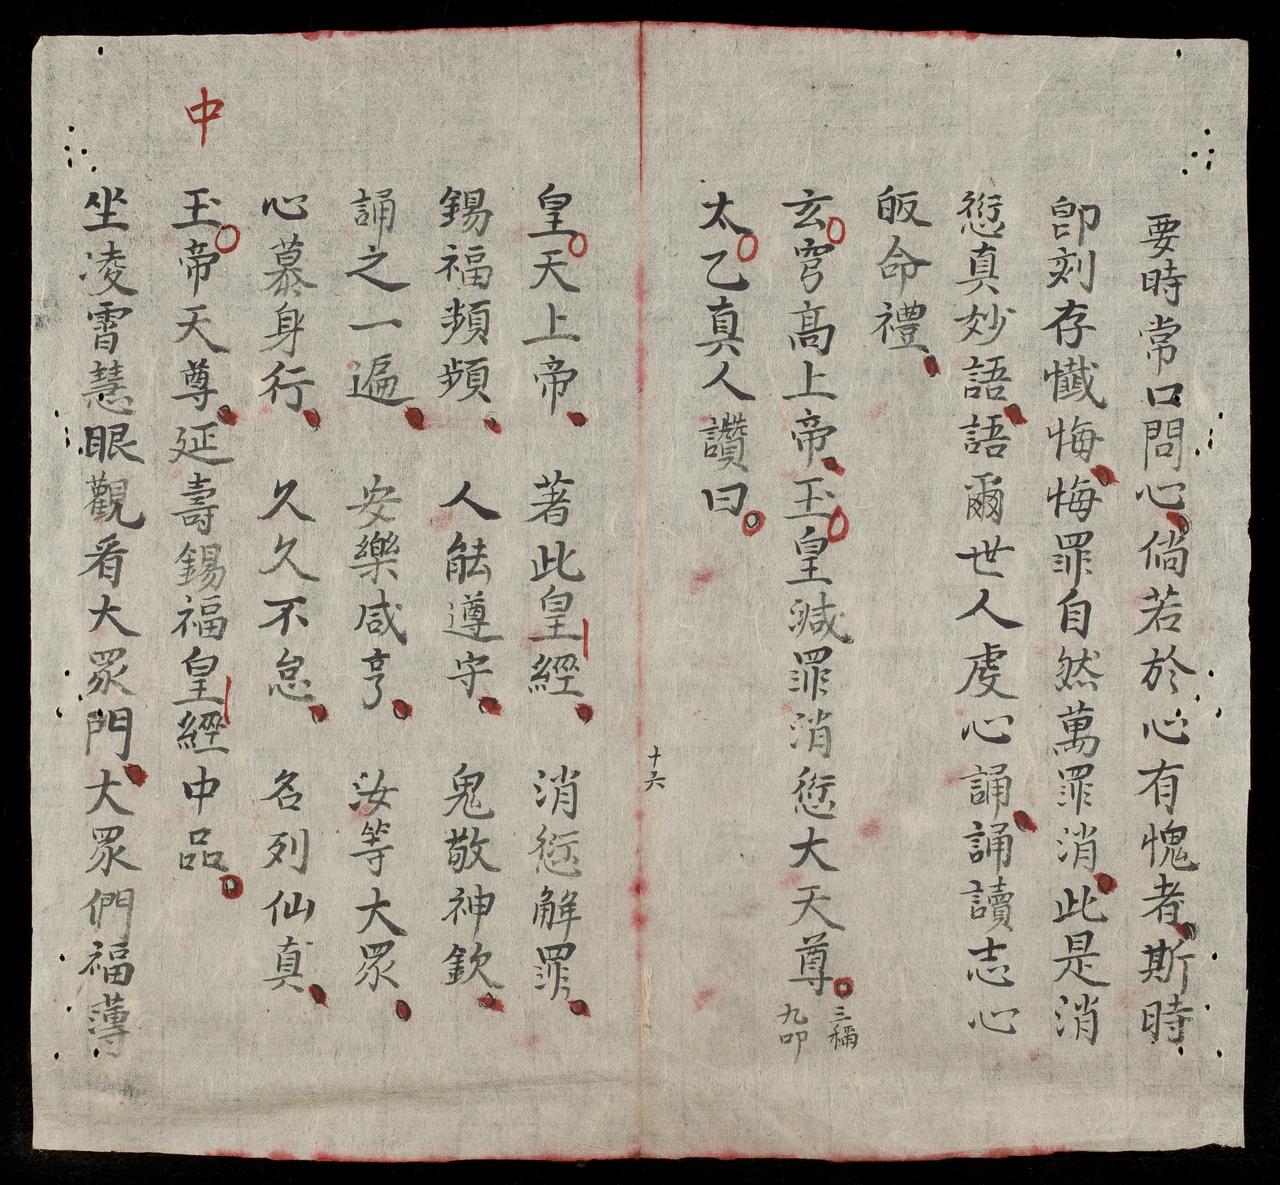 要時常口問心倘若於心有愧者斯時
卽刻存懺悔悔罪自然萬罪消此是消
愆真妙語語爾世人虔心誦誦讀志心
皈命禮
玄穹高上帝玉皇減罪消愆大天尊三稱九叩
太乙真人讚曰
十六
皇天上帝 著此皇經 消愆解罪
錫福頻頻 人能遵守 鬼敬神欽
誦之一遍 安樂咸亨 汝等大眾
心慕身行 久久不怠 名列仙真
中
玉帝天尊延壽錫福皇經中品
坐凌霄慧眼觀看大眾門大眾們福薄